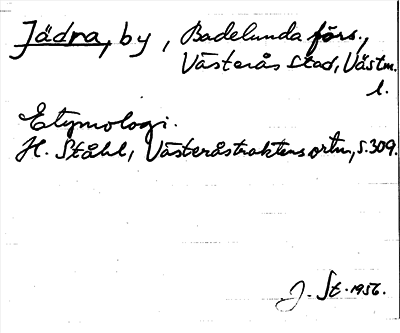 Jädra, by, Badelunda förs.,
Västerås stad, Västm.
l.
Etymologi.
H. Ståhl, Västeråstraktens ortn., s. 309.
J. St. 1956.